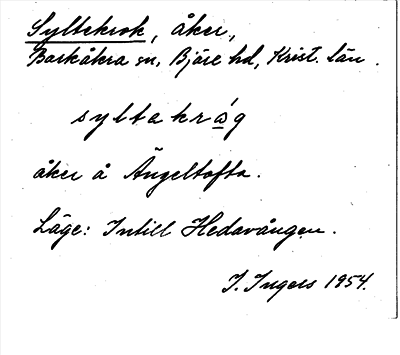 Syltekrok, åker,
Barkåkra sn, Bjäre hd, Krist. län.
syltakrǻg
åker å Ängeltofta.
Läge: Intill Hedavången.
I. Ingers 1954.